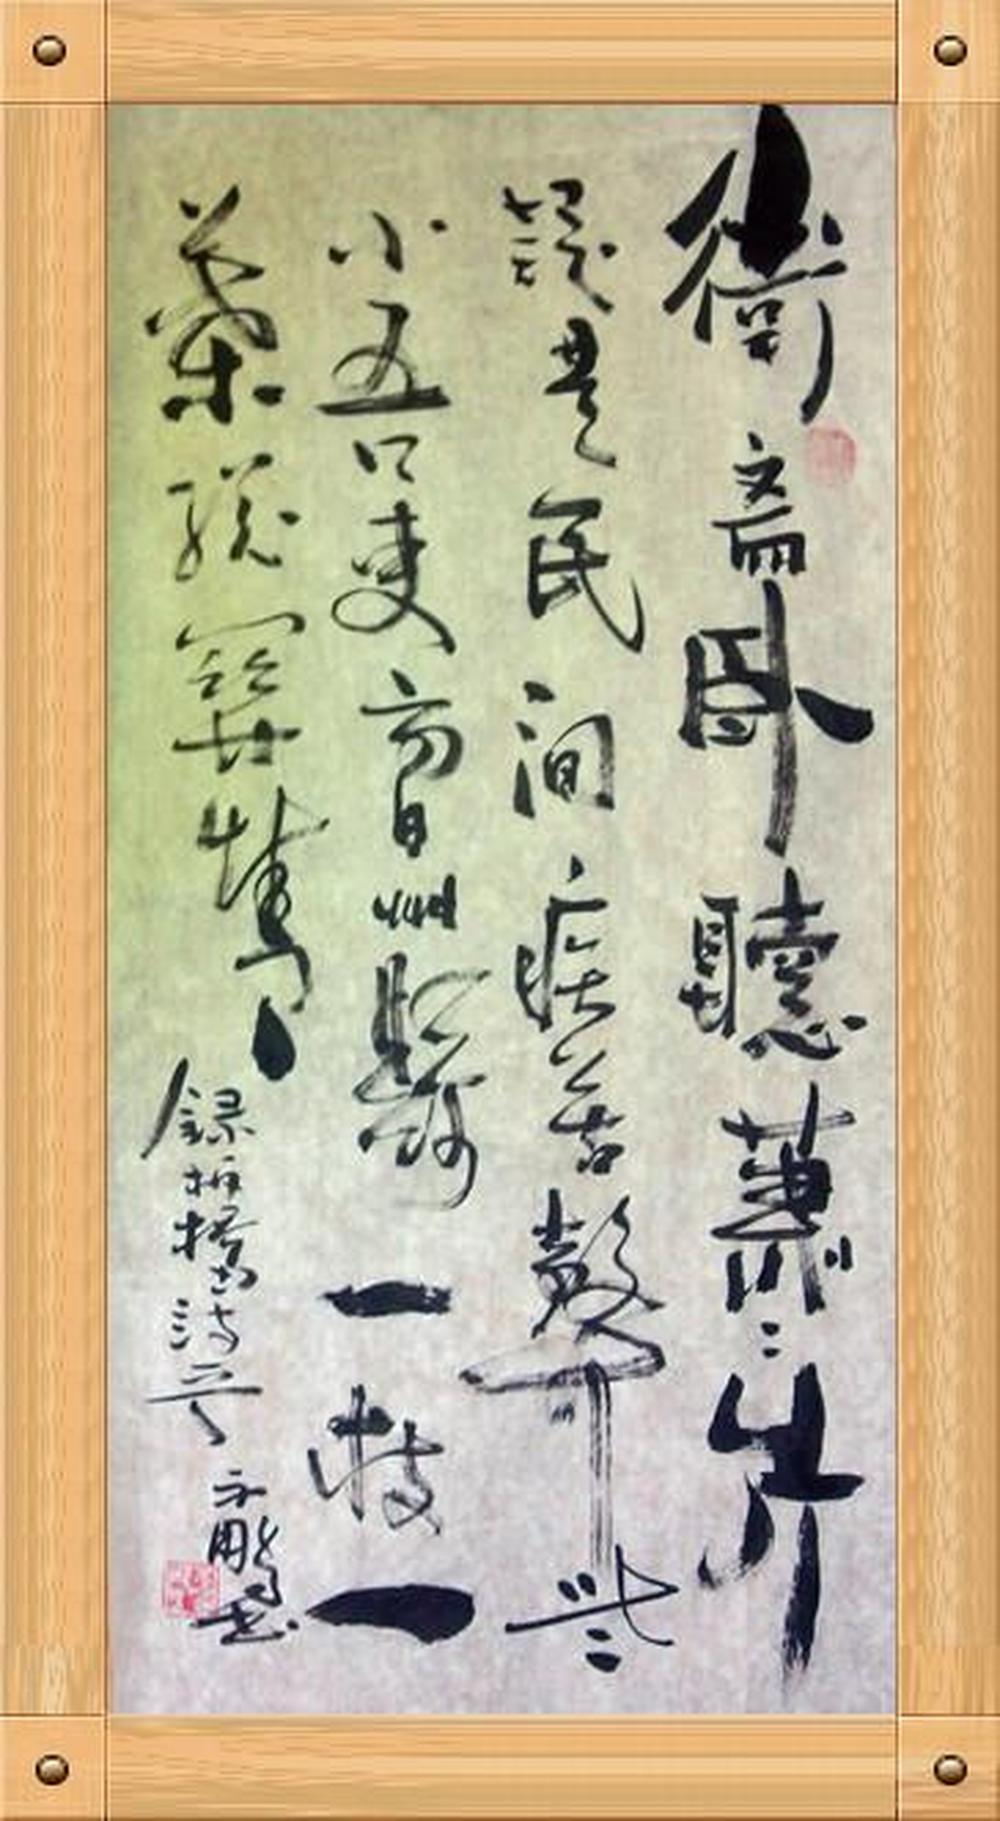 衙斋卧聽蕭〻竹
疑是民间疾苦聲些
小吾吏曹州縣一枝一
葉總關情
錄板橋詩
鵬書